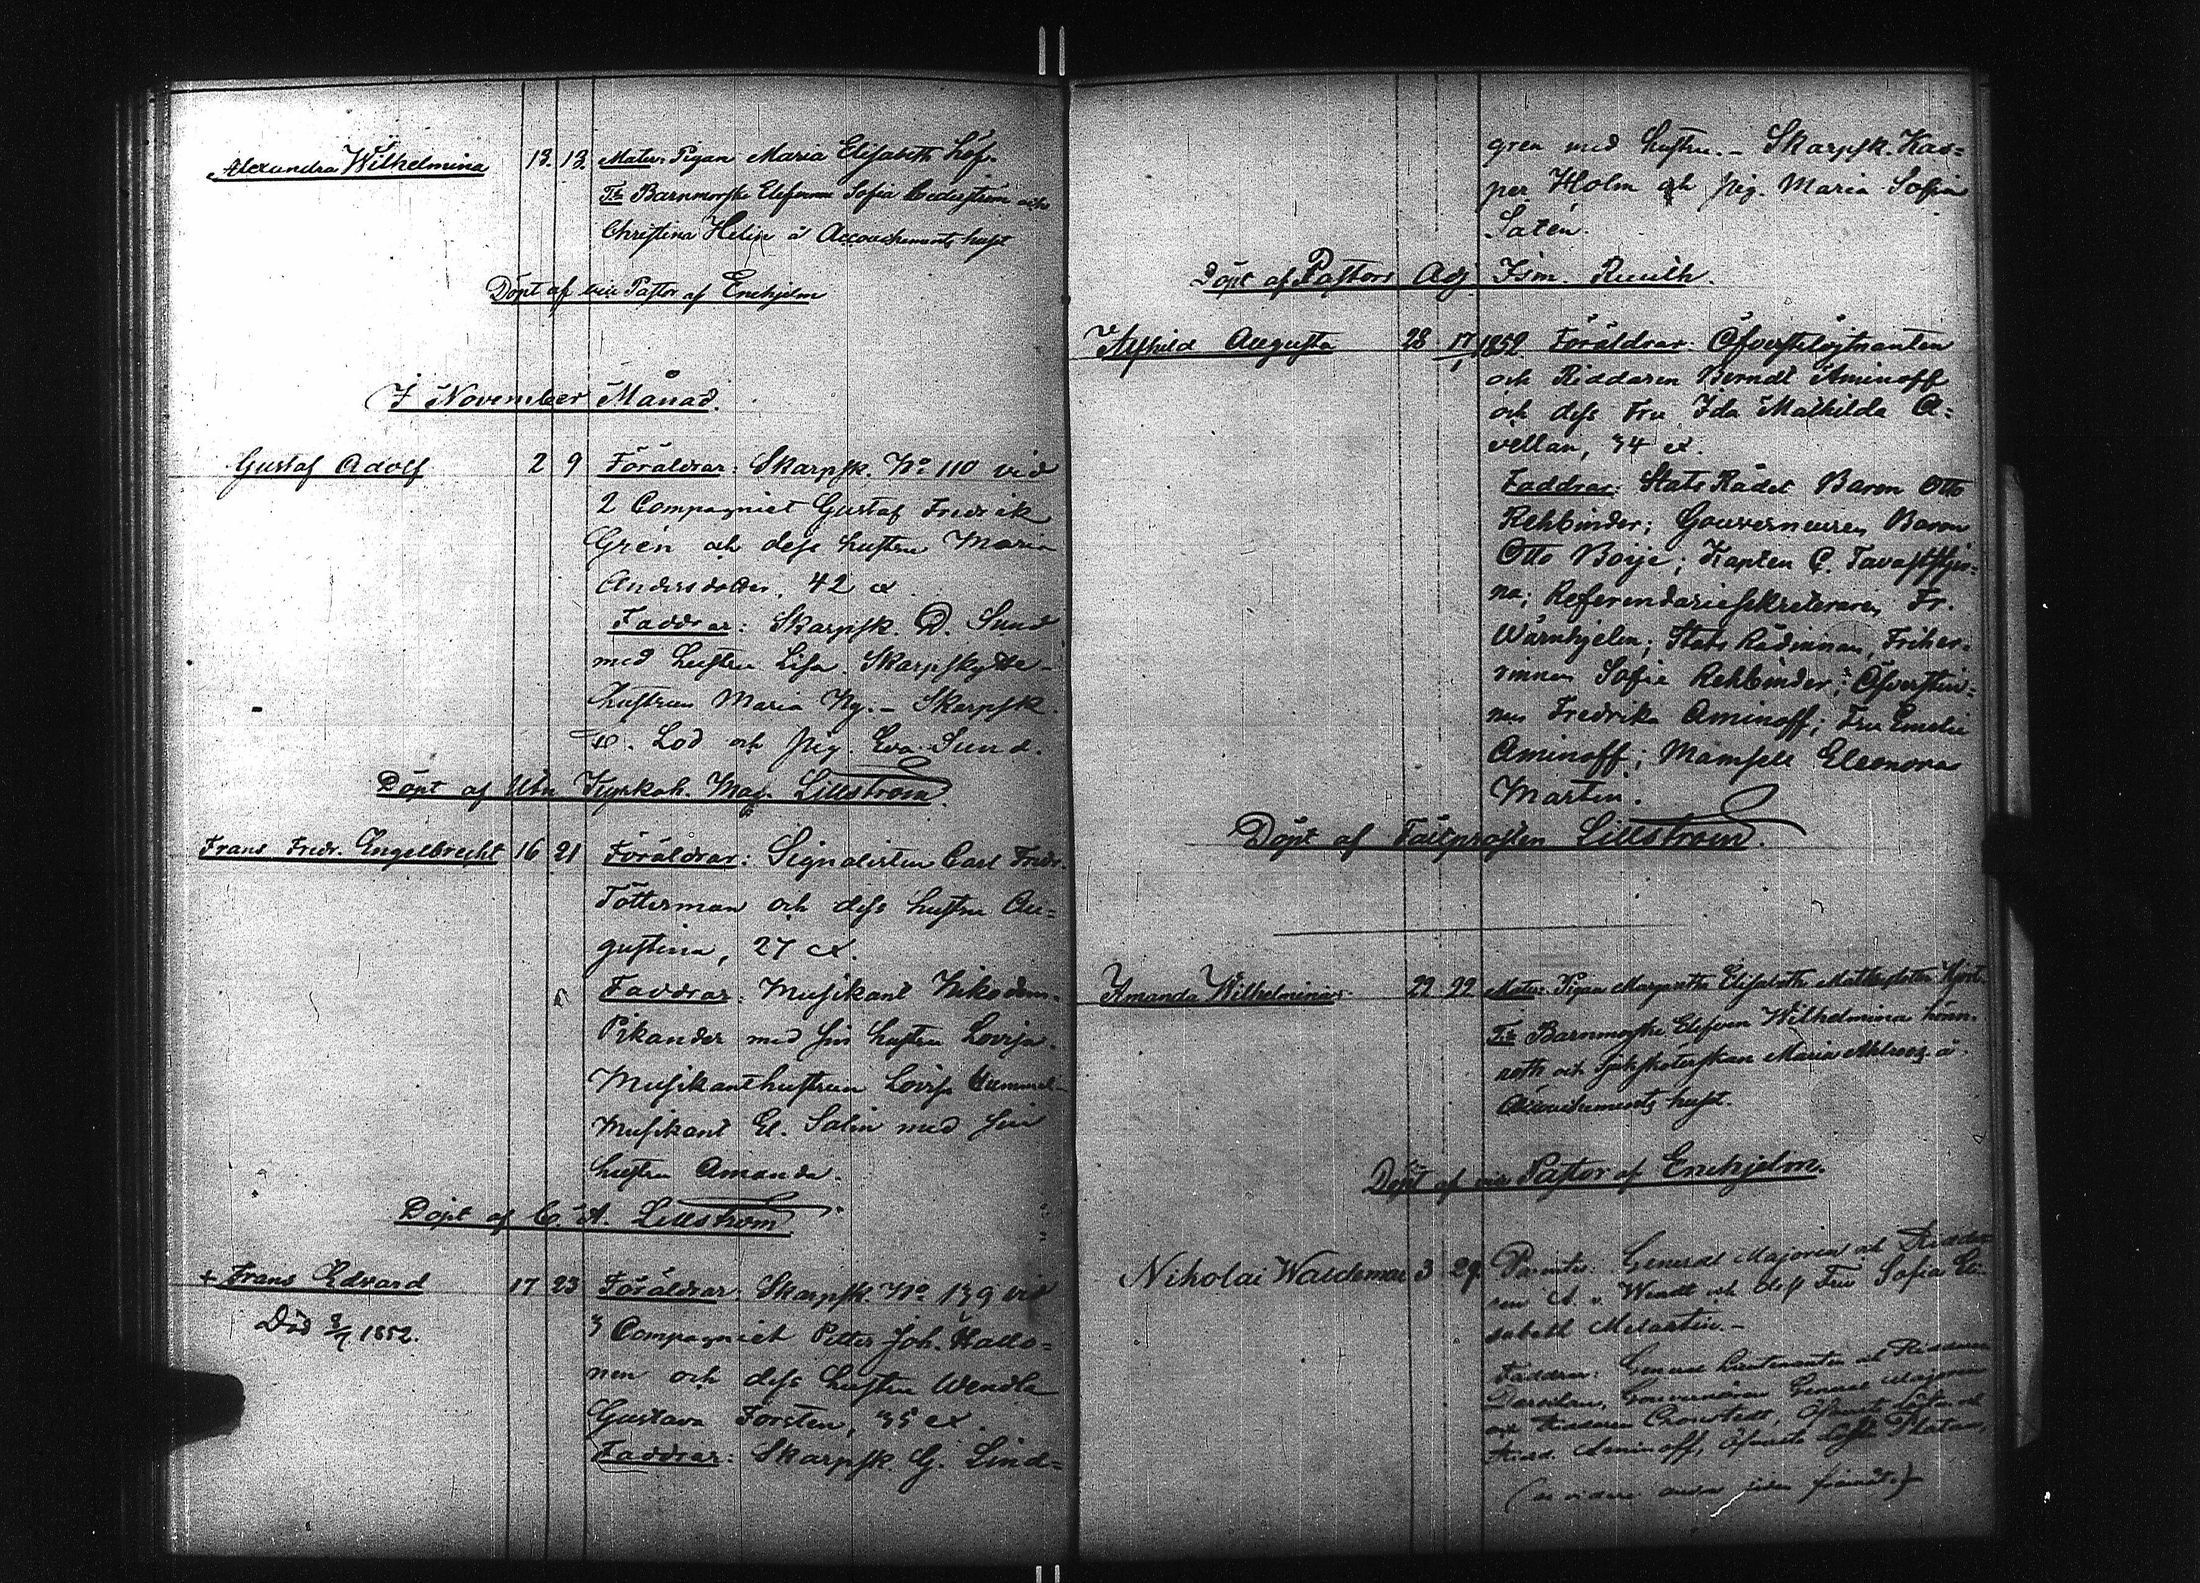 Alexandra Wilhelmina 13. 13. Mater: Pigan Maria Elisabeth Löf.
T:e Barnmorske Elefverna Sofia Cederström och
Christina Helin å Accouchements huset
Döpt af vice Pastor af Enehjelm
I November Månad.
Gustaf Adolf 2 9 Föräldrar: Skarpsk. No 110 vid
2 Compagniet Gustaf Fredrik
Grén och dess hustru Maria
Andersdotter, 42 a.
Faddrar: Skarpsk. D. Sund
med hustru Lisa. Skarpskytte-
hustrun Maria Ny. – Skarpsk.
Lod och pig. Eva Sund.
Döpt af Utn. Kyrkoh. Mag. Lillström.
Frans Fredr. Engelbrecht 16 21 Föräldrar: Signalisten Carl Fredr.
Tötterman och dess hustru Au=
gustina, 27 a.
Faddrar: Musikant Nikodem.
Pikander med sin hustru Lovisa.
Musikanthustrun Lovisa Hummel-
Musikant El. Salin med sin
hustru Amanda.
Döpt af C. A. Lillström
+ Frans Edvard 17 23 Föräldrar: Skarpsk. No 139 vid
Död 8/7 1852. 3 Compagniet Petter Joh. Hallo=
nen och dess hustru Wendla
Gustava Forsten, 35 a.
Faddrar: Skarpsk. G. Lind=
gren med hustru. – Skarpsk. Kas=
per Holm och pig. Maria Sofia
Satén.
Döpt af Pastors Adj. Ism. Ruuth.
Alfhild Augusta 28 17/1 1852 Föräldrar: Öfverstelöjtnanten
och Riddaren Berndt Aminoff
och dess Fru Ida Mathilda A=
vellan, 34 a.
Faddrar: Stats Rådet Baron Otto
Rehbinder; Gouverneuren Baron
Otto Boije; Kapten C. Tavaststjer=
na; Referendariesekreteraren Fr.
Wärnhjelm; Stats Rådinnan, Friher=
rinnan Sofie Rehbinder; Öfverstin=
nan Fredrika Aminoff; Fru Emelie
Aminoff; Mamsell Eleonora
Martin.
Döpt af Fältprosten Lillström.
Amanda Wilhelmina 22 22 Mater: Pigan Margaretha Elisabeth Mattsdotter
T:e Barnmorske Elefven Wilhelmina Lönn-
roth och Sjuksköterskan Maria å
Accouchements huset.
Döpt af vice Pastor af Enehjelm.
Nikolai Waldemar 3 29. Parentes: General Majoren och Ridda-
ren A. v. Wendt och dess Fru Sofia Eli-
sabeth Melartin. –
Faddrar: General Lieutenanten och Riddaren
General Majoren
och Riddaren Cronstedt, Öfverste Löjtn. och
Ridd. Aminoff, Öfverste Löjtn.
(se vidare andra sidan)